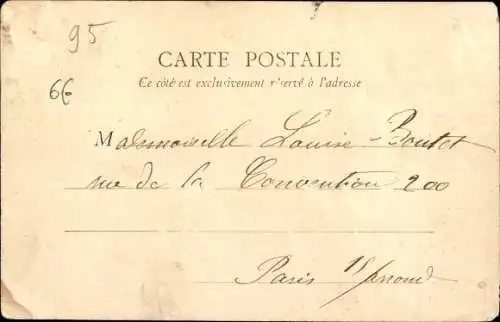 95
CARTE POSTALE
Ce côté est exclusivement réservé à l'adresse
6€
Mademoiselle Louise Boutet
rue de la Convention 200
Paris 15 arrond